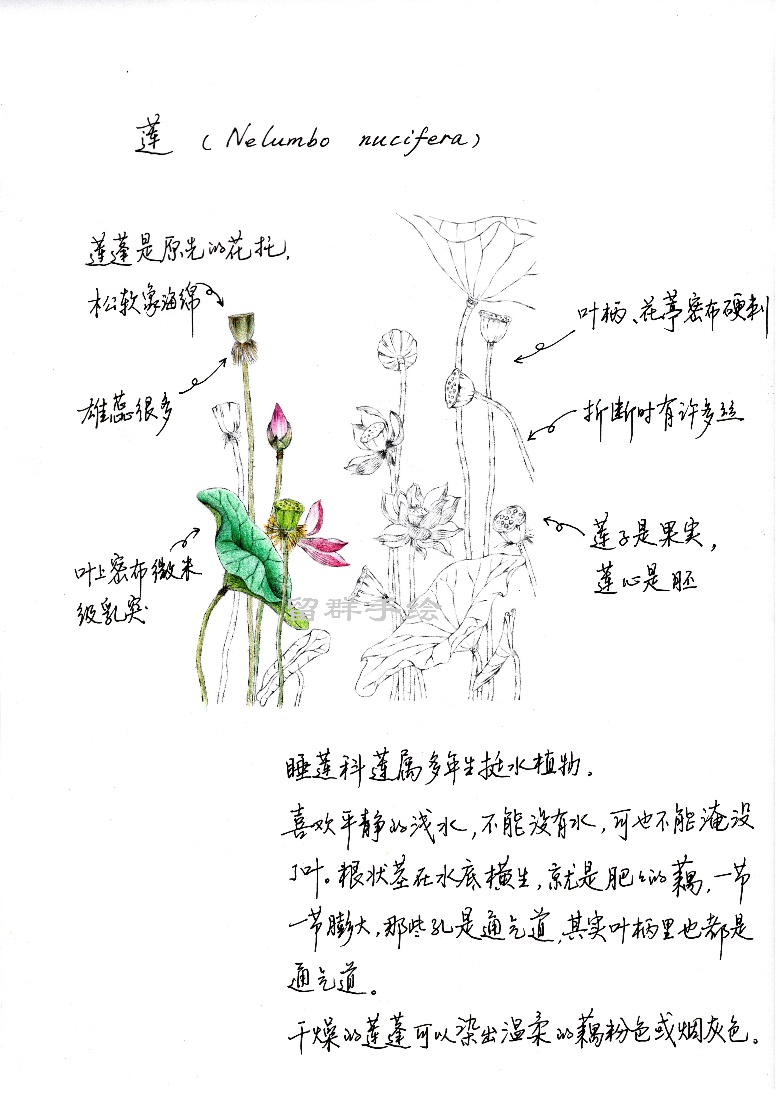 莲（Nelumbo nucifera）
莲蓬是原先的花托，
松软象海绵
雄蕊很多
叶上密布微米
级乳突
叶柄、花葶密布硬刺
折断时有许多丝
莲子是果实，
莲心是胚
留群手绘
睡莲科莲属多年生挺水植物。
喜欢平静的浅水，不能没有水，可也不能淹没
了叶。根状茎在水底横生，就是肥肥的藕，一节
一节膨大，那些孔是通气道，其实叶柄里也都是
通气道。
干燥的莲蓬可以染出温柔的藕粉色或烟灰色。